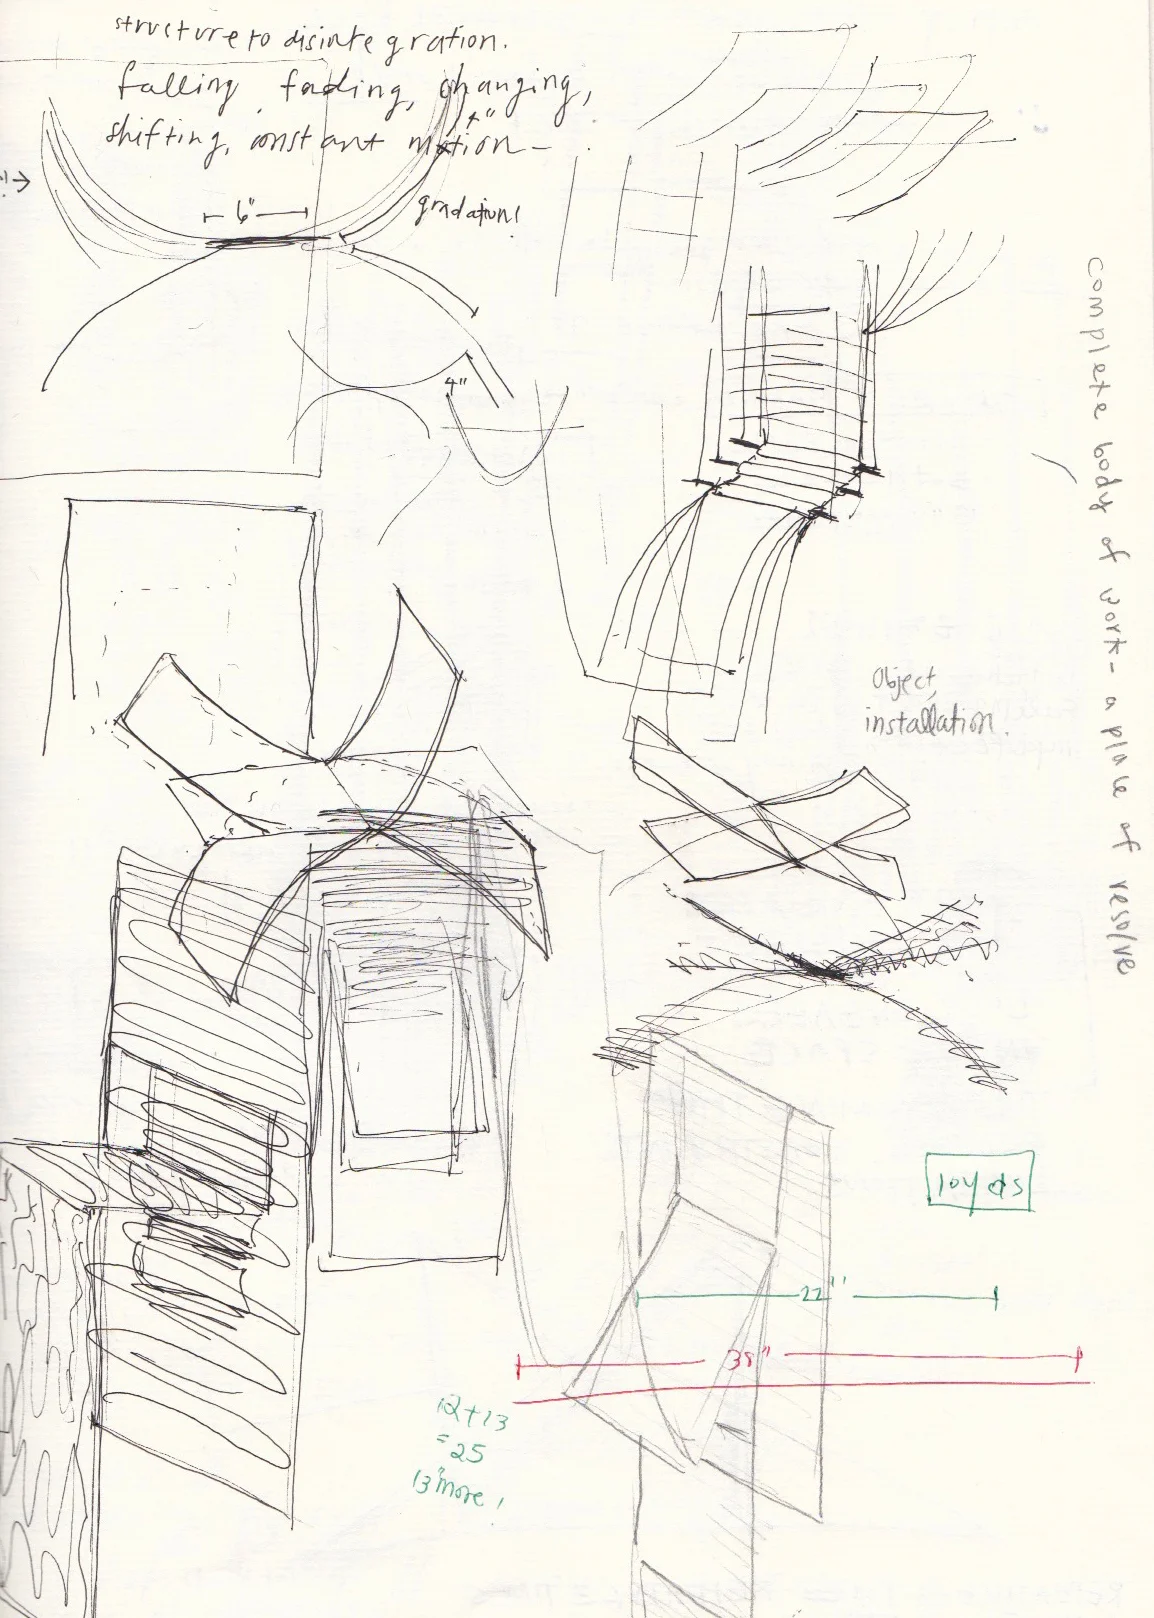 structure to disintegration.
falling, fading, changing,
shifting, constant motion-
6"
gradation!
4"
complete body of work- a place of resolve
Object,
installation.
10yds
22"
38"
12+13
=25
13"more!